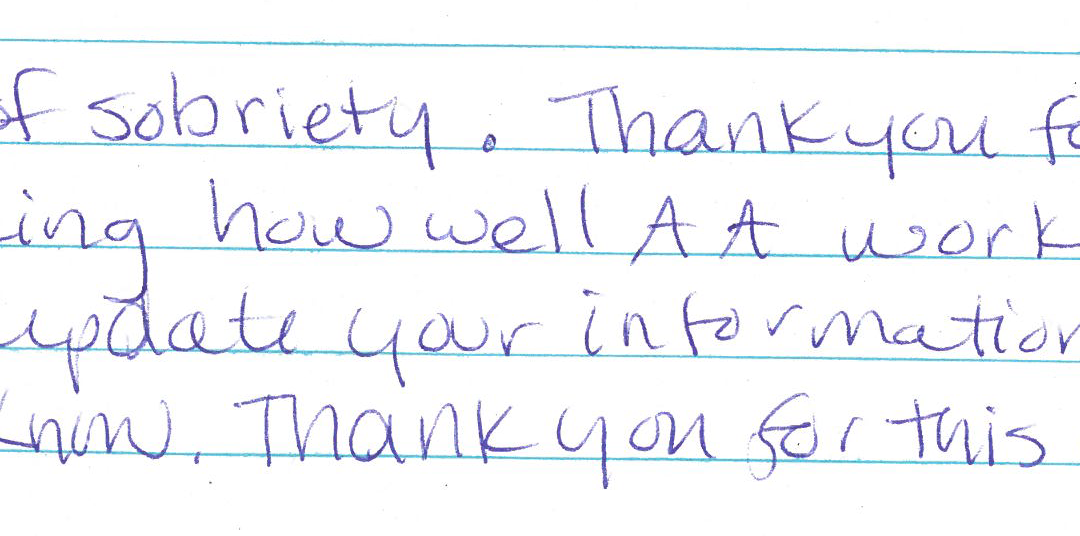 of sobriety. Thank you fo
ing how well AA work
update your information
know. Thank you for this